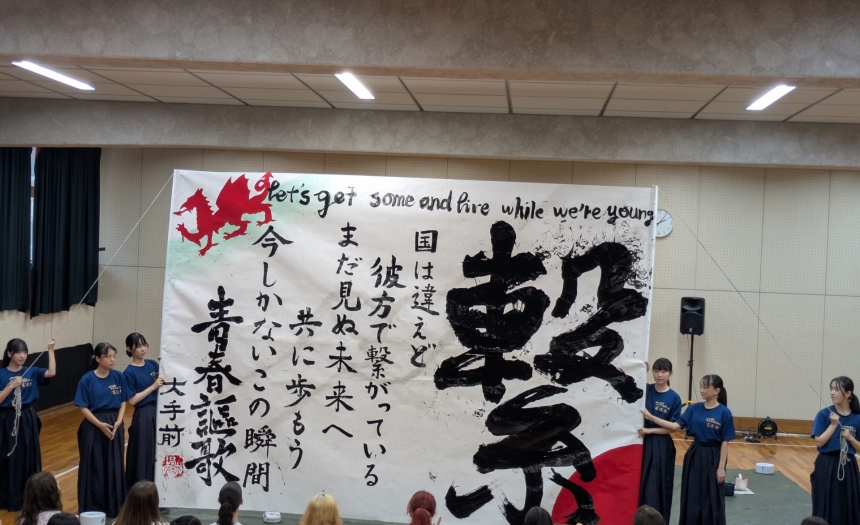 Let's get some and live while we're young
繋
国は違えど
彼方で繋がっている
まだ見ぬ未来へ
共に歩もう
今しかないこの瞬間
青春謳歌
大手前